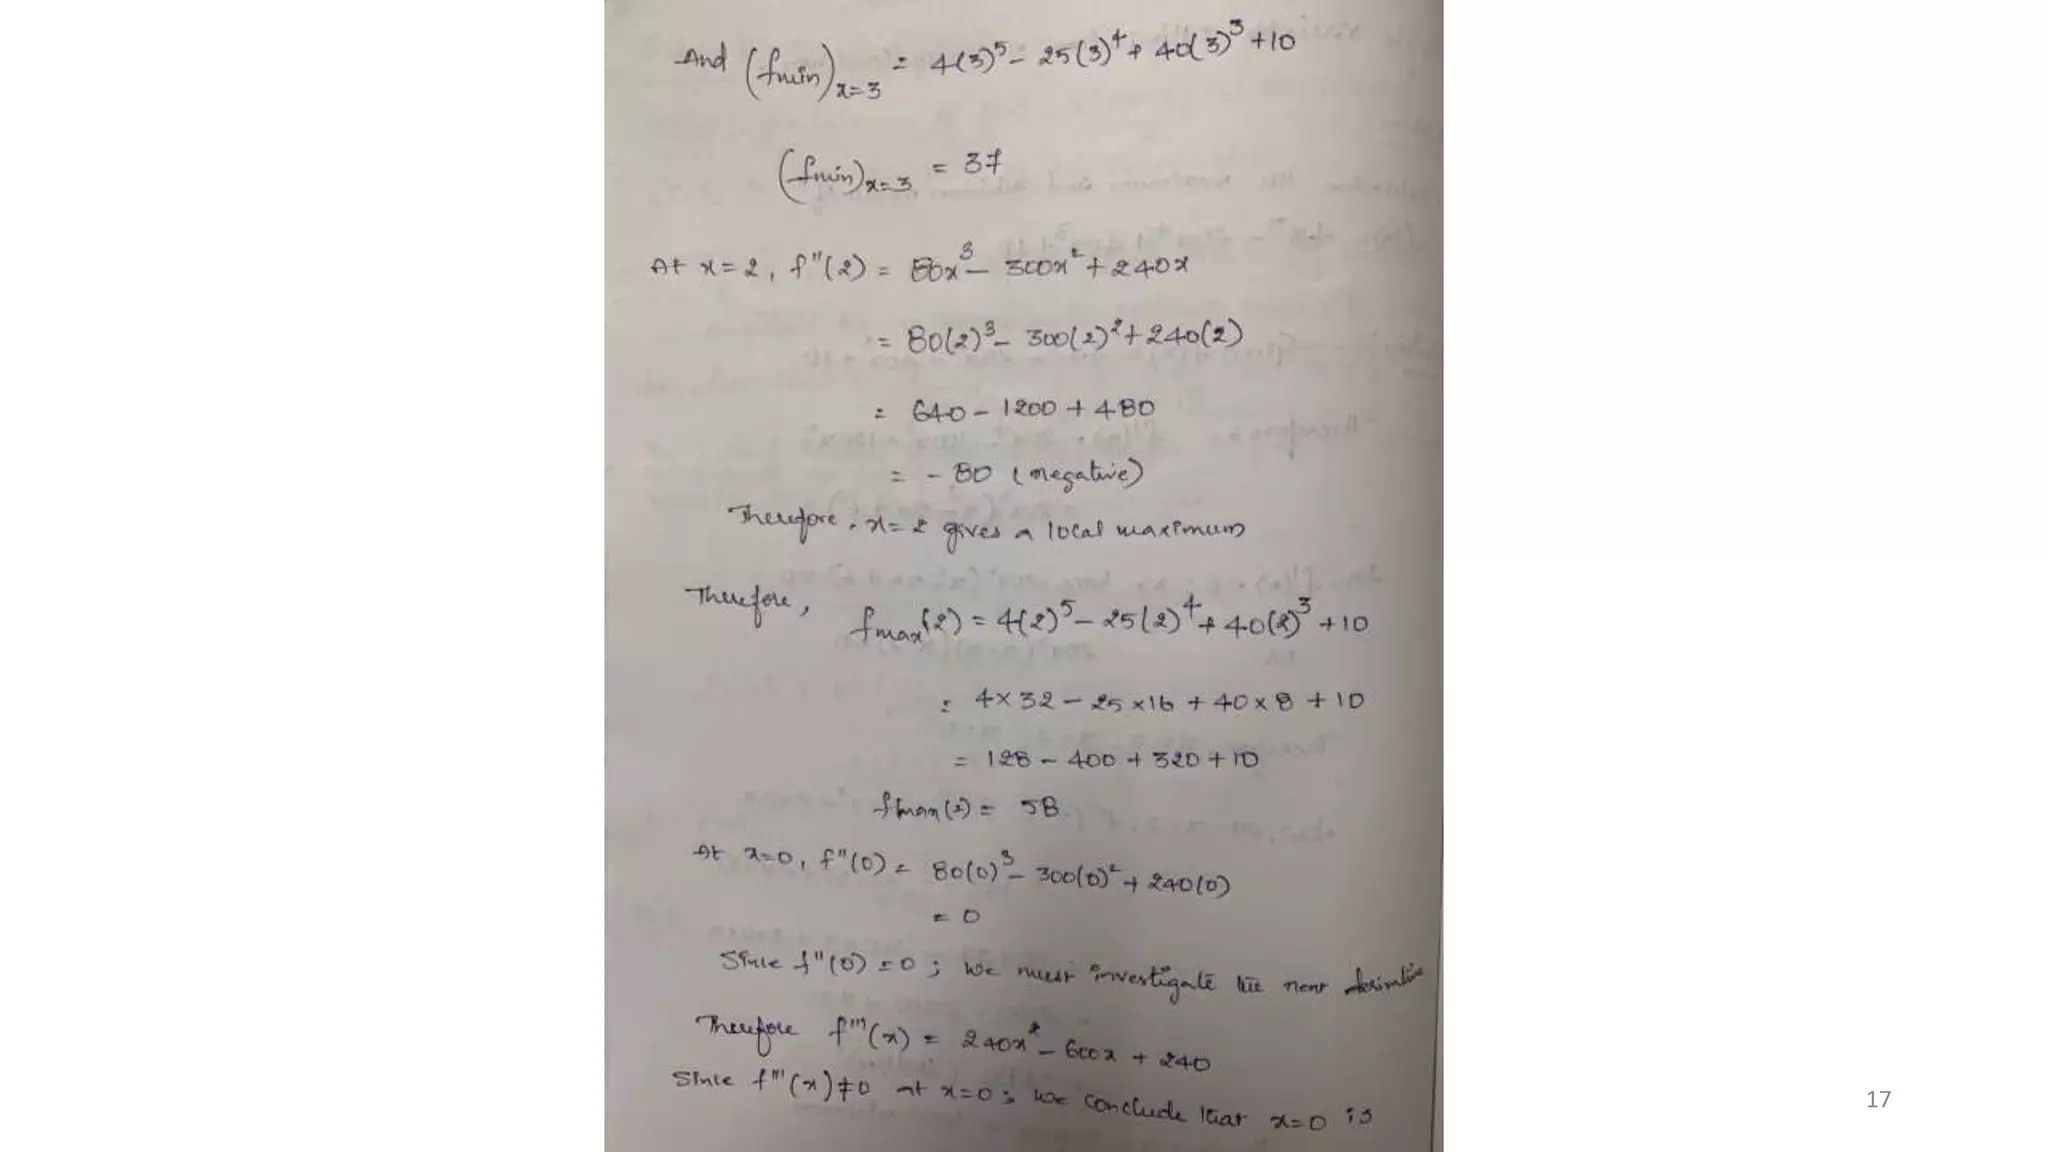 And (fmin)x=3 = 4(3)⁵ - 25(3)⁴ + 40(3)³ + 10
(fmin)x=3 = 37
At x = 2, f"(2) = 80x³ - 300x² + 240x
= 80(2)³ - 300(2)² + 240(2)
= 640 - 1200 + 480
= - 80 (negative)
Therefore, x = 2 gives a local maximum
Therefore, fmax(2) = 4(2)⁵ - 25(2)⁴ + 40(2)³ + 10
= 4×32 - 25×16 + 40×8 + 10
= 128 - 400 + 320 + 10
fmax(2) = 58.
At x=0, f"(0) = 80(0)³ - 300(0)² + 240(0)
= 0
Since f"(0) = 0 ; we must investigate the next derivative
Therefore f"'(x) = 240x² - 600x + 240
Since f"'(x) ≠ 0 at x=0 ; we conclude that x=0 is
17